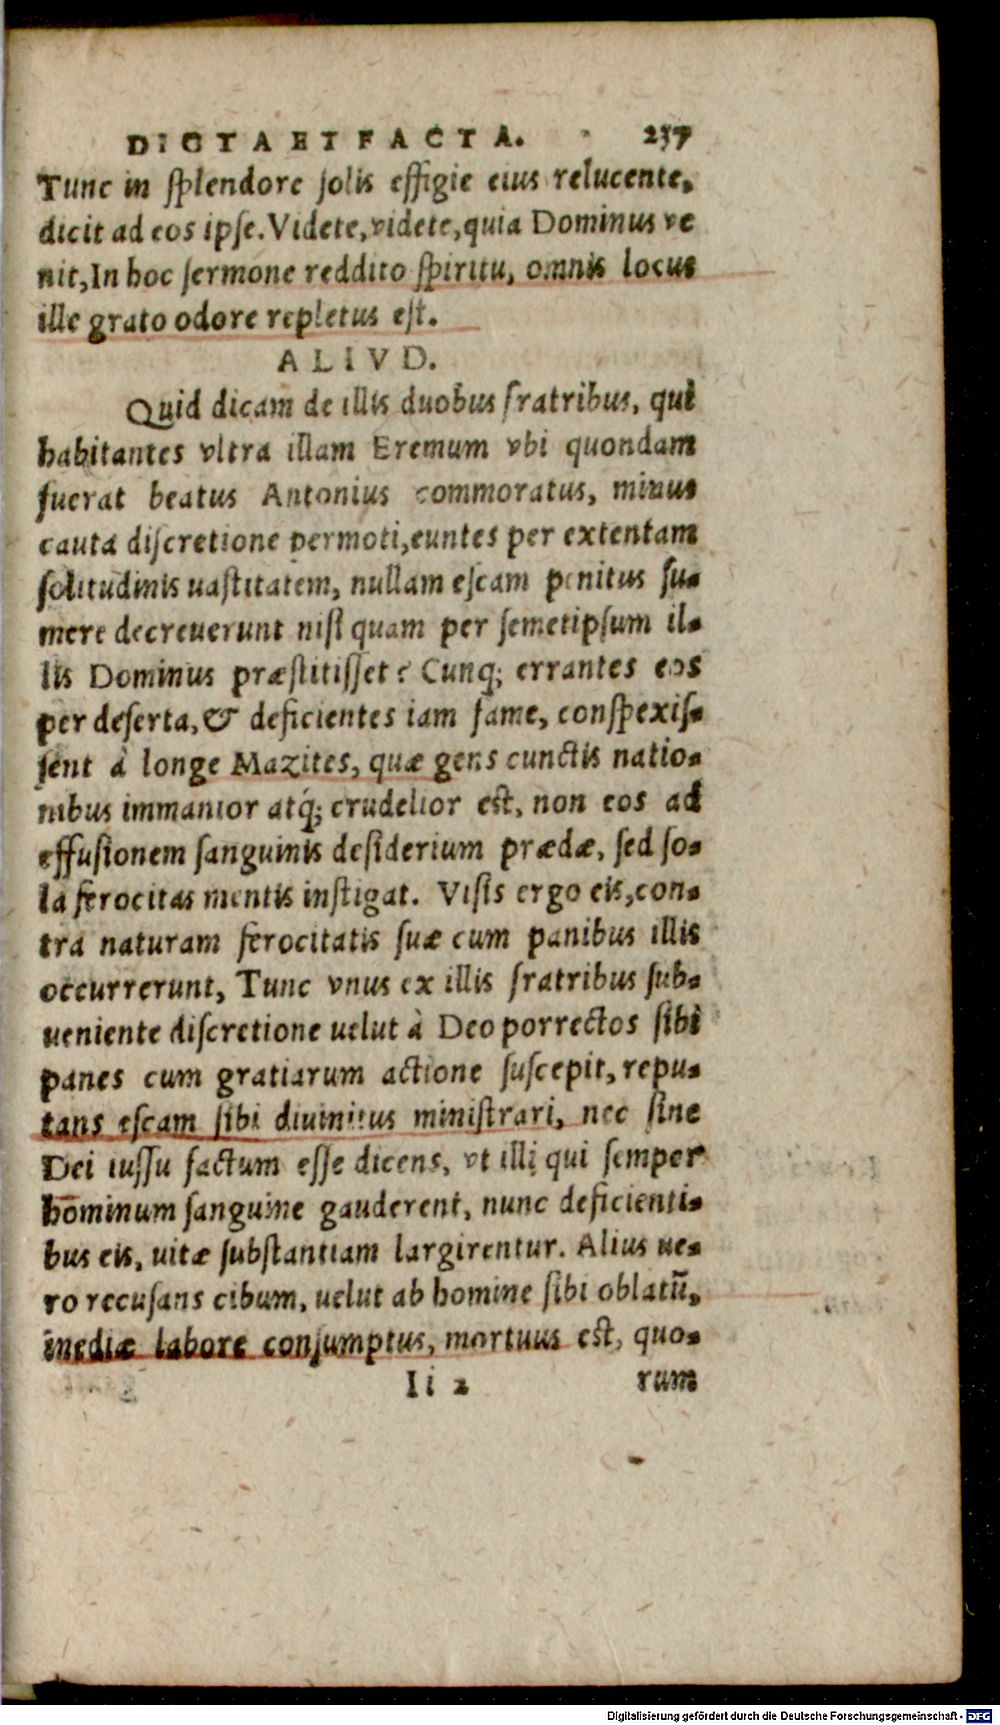 DICTA ET FACTA. 237
Tunc in ſplendore ſolis effigie eius relucente,
dicit ad eos ipſe. Videte, videte, quia Dominus ve
nit, In hoc ſermone reddito ſpiritu, omnis locus
ille grato odore repletus eſt.
ALIVD.
Quid dicam de illis duobus fratribus, qui
habitantes vltra illam Eremum vbi quondam
fuerat beatus Antonius commoratus, minus
cauta diſcretione permoti, euntes per extentam
ſolitudinis uaſtitatem, nullam eſcam penitus ſu-
mere decreuerunt niſi quam per ſemetipſum il-
lis Dominus præſtitiſſet? Cunq; errantes eos
per deſerta, & deficientes iam fame, conſpexiſ-
ſent à longe Mazites, quæ gens cunctis natio-
nibus immanior atq́; crudelior eſt, non eos ad
effuſionem ſanguinis deſiderium prædæ, ſed ſo-
la ferocitas mentis inſtigat. Viſis ergo eis, con-
tra naturam ferocitatis ſuæ cum panibus illis
occurrerunt, Tunc vnus ex illis fratribus ſub-
ueniente diſcretione uelut à Deo porrectos ſibi
panes cum gratiarum actione ſuſcepit, repu-
tans eſcam ſibi diuinitus miniſtrari, nec ſine
Dei iuſſu factum eſſe dicens, vt illi qui ſemper
hominum ſanguine gauderent, nunc deficienti-
bus eis, uitæ ſubſtantiam largirentur. Alius ue-
ro recuſans cibum, uelut ab homine ſibi oblatū,
inediæ labore conſumptus, mortuus eſt, quo-
Ii 2 rum
Digitalisierung gefördert durch die Deutsche Forschungsgemeinschaft - DFG